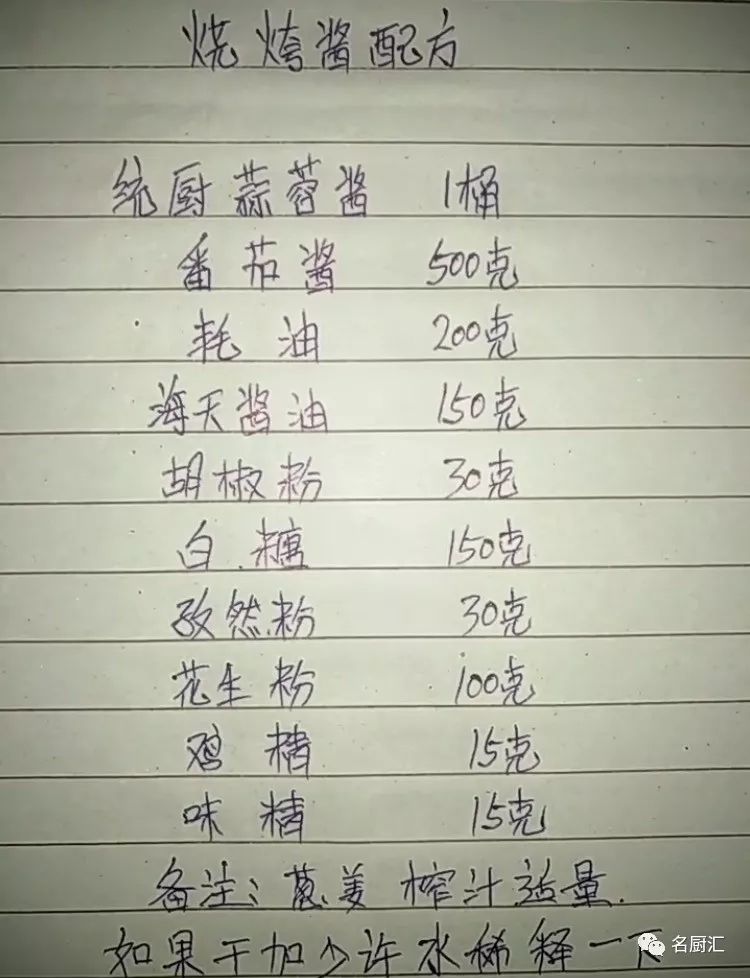 烧烤酱配方
统厨蒜蓉酱 1桶
番茄酱 500克
耗油 200克
海天酱油 150克
胡椒粉 30克
白糖 150克
孜然粉 30克
花生粉 100克
鸡精 15克
味精 15克
备注：葱姜榨汁适量.
如果干加少许水稀释一下
名厨汇